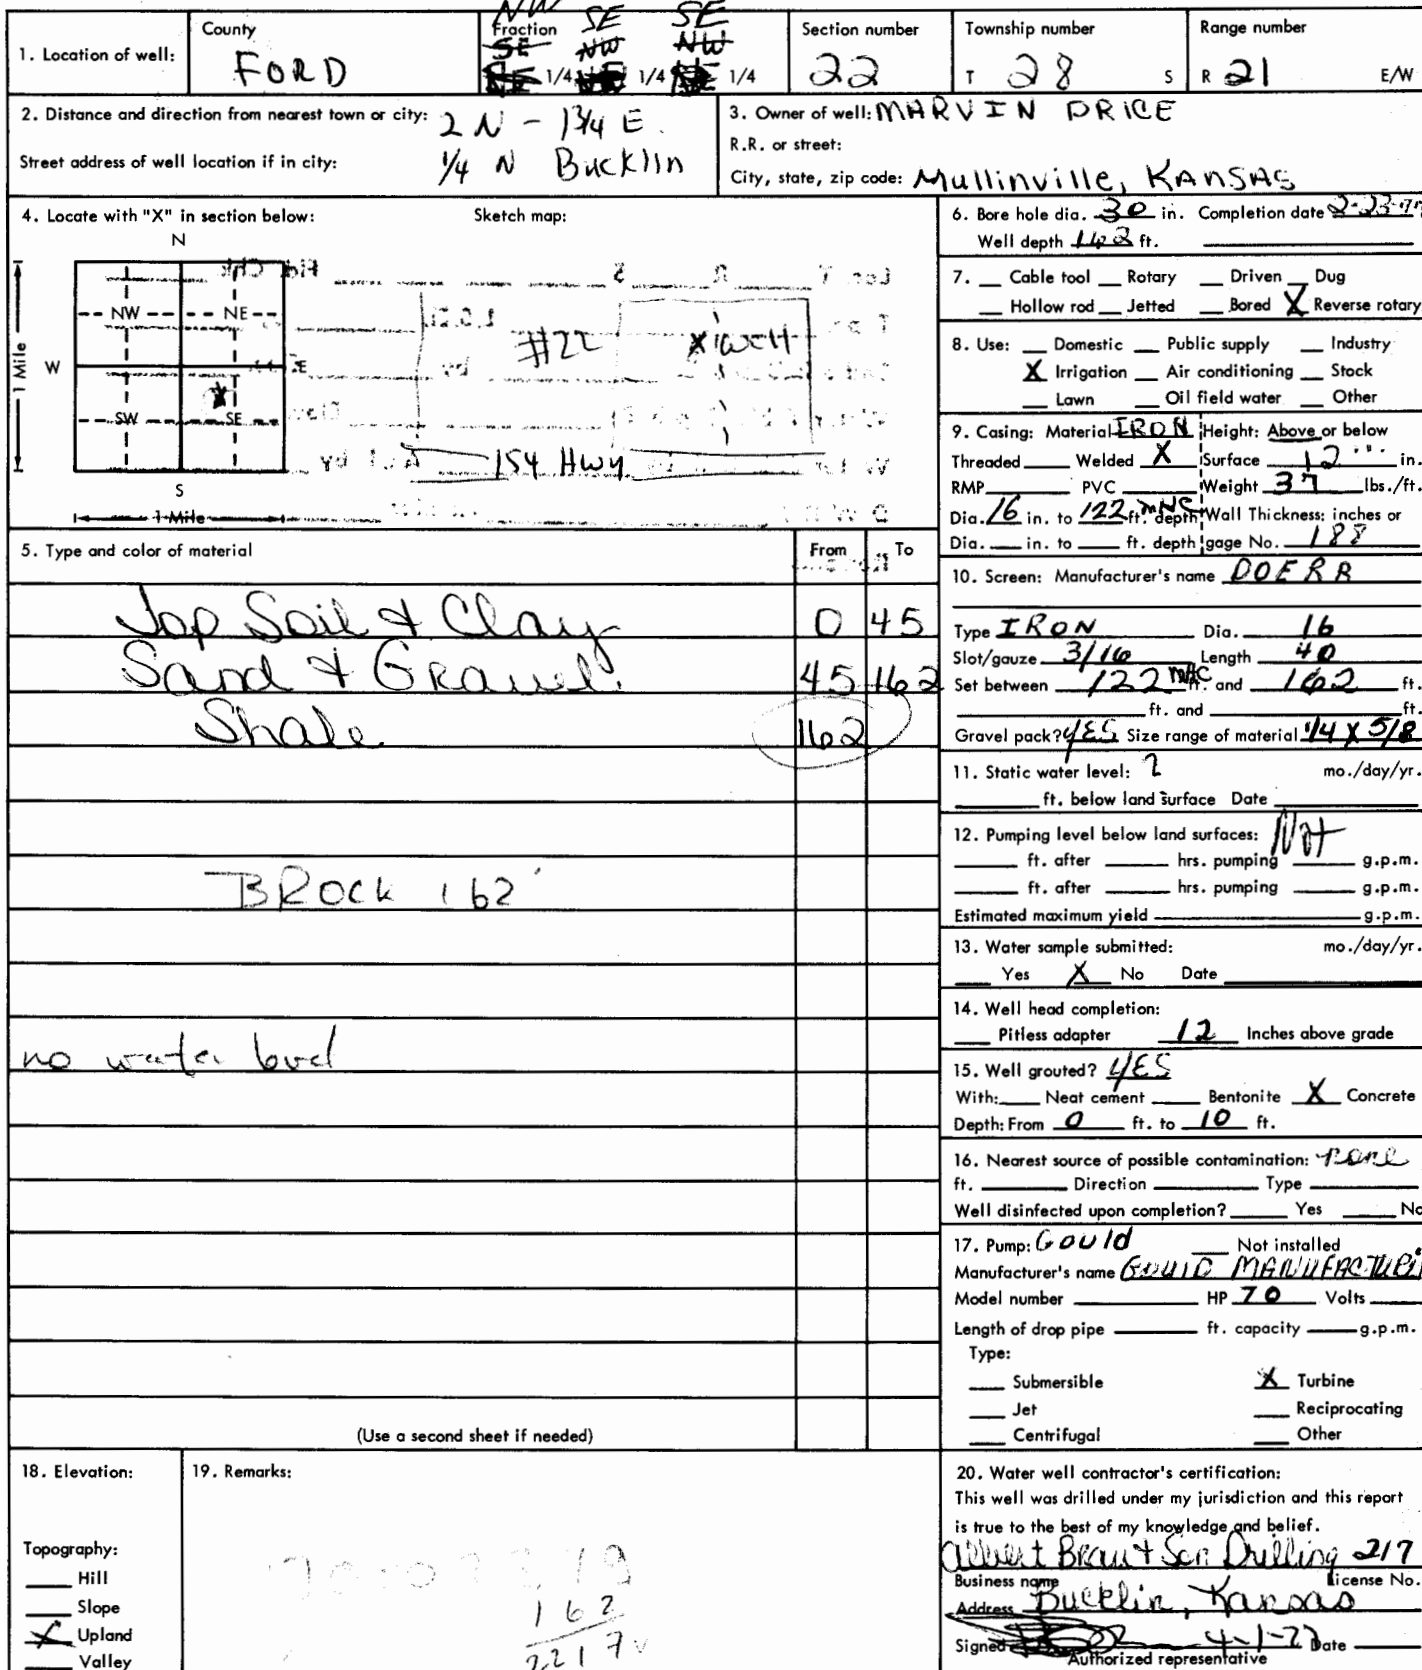 NW SE SE
County Fraction Section number Township number Range number
SE NW NW
1. Location of well: FORD 1/4 1/4 1/4 22 T 28 S R 21 E/W
2. Distance and direction from nearest town or city: 2 N - 1 3/4 E.
Street address of well location if in city: 1/4 N Bucklin
3. Owner of well: MARVIN PRICE
R.R. or street:
City, state, zip code: Mullinville, KANSAS
4. Locate with "X" in section below: Sketch map:
N
NW NE
W E
SW SE
S
1 Mile
1 Mile
#22 X WELL
154 HWY
5. Type and color of material From To
Top Soil & Clay 0 45
Sand & Gravel 45 162
Shale 162
BROCK 162'
no water level
(Use a second sheet if needed)
6. Bore hole dia. 30 in. Completion date 2-23-77
Well depth 162 ft.
7. Cable tool Rotary Driven Dug
Hollow rod Jetted Bored X Reverse rotary
8. Use: Domestic Public supply Industry
X Irrigation Air conditioning Stock
Lawn Oil field water Other
9. Casing: Material IRON Height: Above or below
Threaded Welded X Surface 12 in.
RMP PVC Weight 37 lbs./ft.
Dia. 16 in. to 122 ft. depth Wall Thickness: inches or
Dia. in. to ft. depth gage No. 188
10. Screen: Manufacturer's name DOERR
Type IRON Dia. 16
Slot/gauze 3/16 Length 40
Set between 122 ft. and 162 ft.
ft. and ft.
Gravel pack? YES Size range of material 1/4 X 5/8
11. Static water level: ? mo./day/yr.
ft. below land surface Date
12. Pumping level below land surfaces: Not
ft. after hrs. pumping g.p.m.
ft. after hrs. pumping g.p.m.
Estimated maximum yield g.p.m.
13. Water sample submitted: mo./day/yr.
Yes X No Date
14. Well head completion:
Pitless adapter 12 Inches above grade
15. Well grouted? YES
With: Neat cement Bentonite X Concrete
Depth: From 0 ft. to 10 ft.
16. Nearest source of possible contamination: none
ft. Direction Type
Well disinfected upon completion? Yes No
17. Pump: Gould Not installed
Manufacturer's name GOULD MANUFACTURI
Model number HP 70 Volts
Length of drop pipe ft. capacity g.p.m.
Type:
Submersible X Turbine
Jet Reciprocating
Centrifugal Other
18. Elevation:
Topography:
Hill
Slope
X Upland
Valley
19. Remarks:
162
2217
20. Water well contractor's certification:
This well was drilled under my jurisdiction and this report
is true to the best of my knowledge and belief.
Albert Brau & Son Drilling 217
Business name License No.
Address Bucklin, Kansas
Signed 4-1-77 Date
Authorized representative